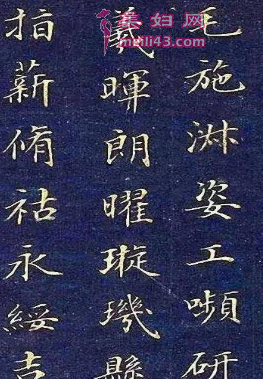 美妇网
meili43.com
毛施淑姿工嚬研
羲暉朗曜璇璣縣
指薪脩祜永綏吉